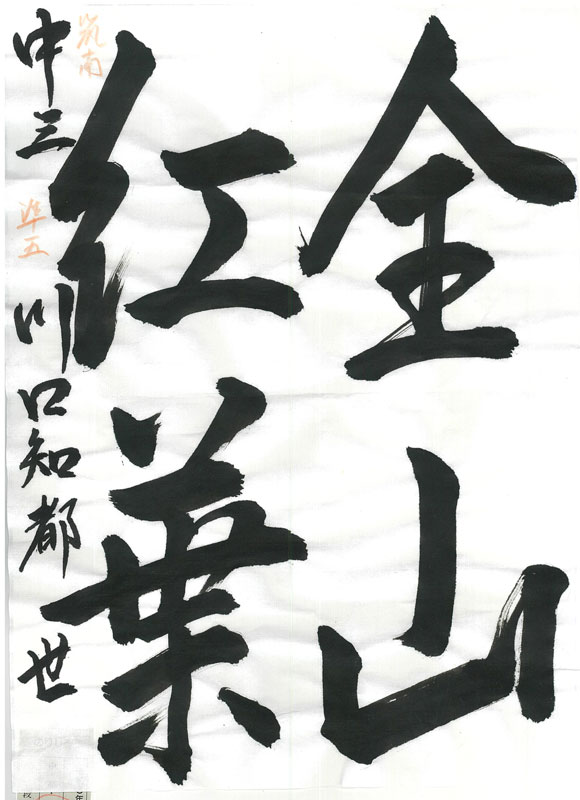 全山
紅葉
中三 川口知都世
筑南
準五